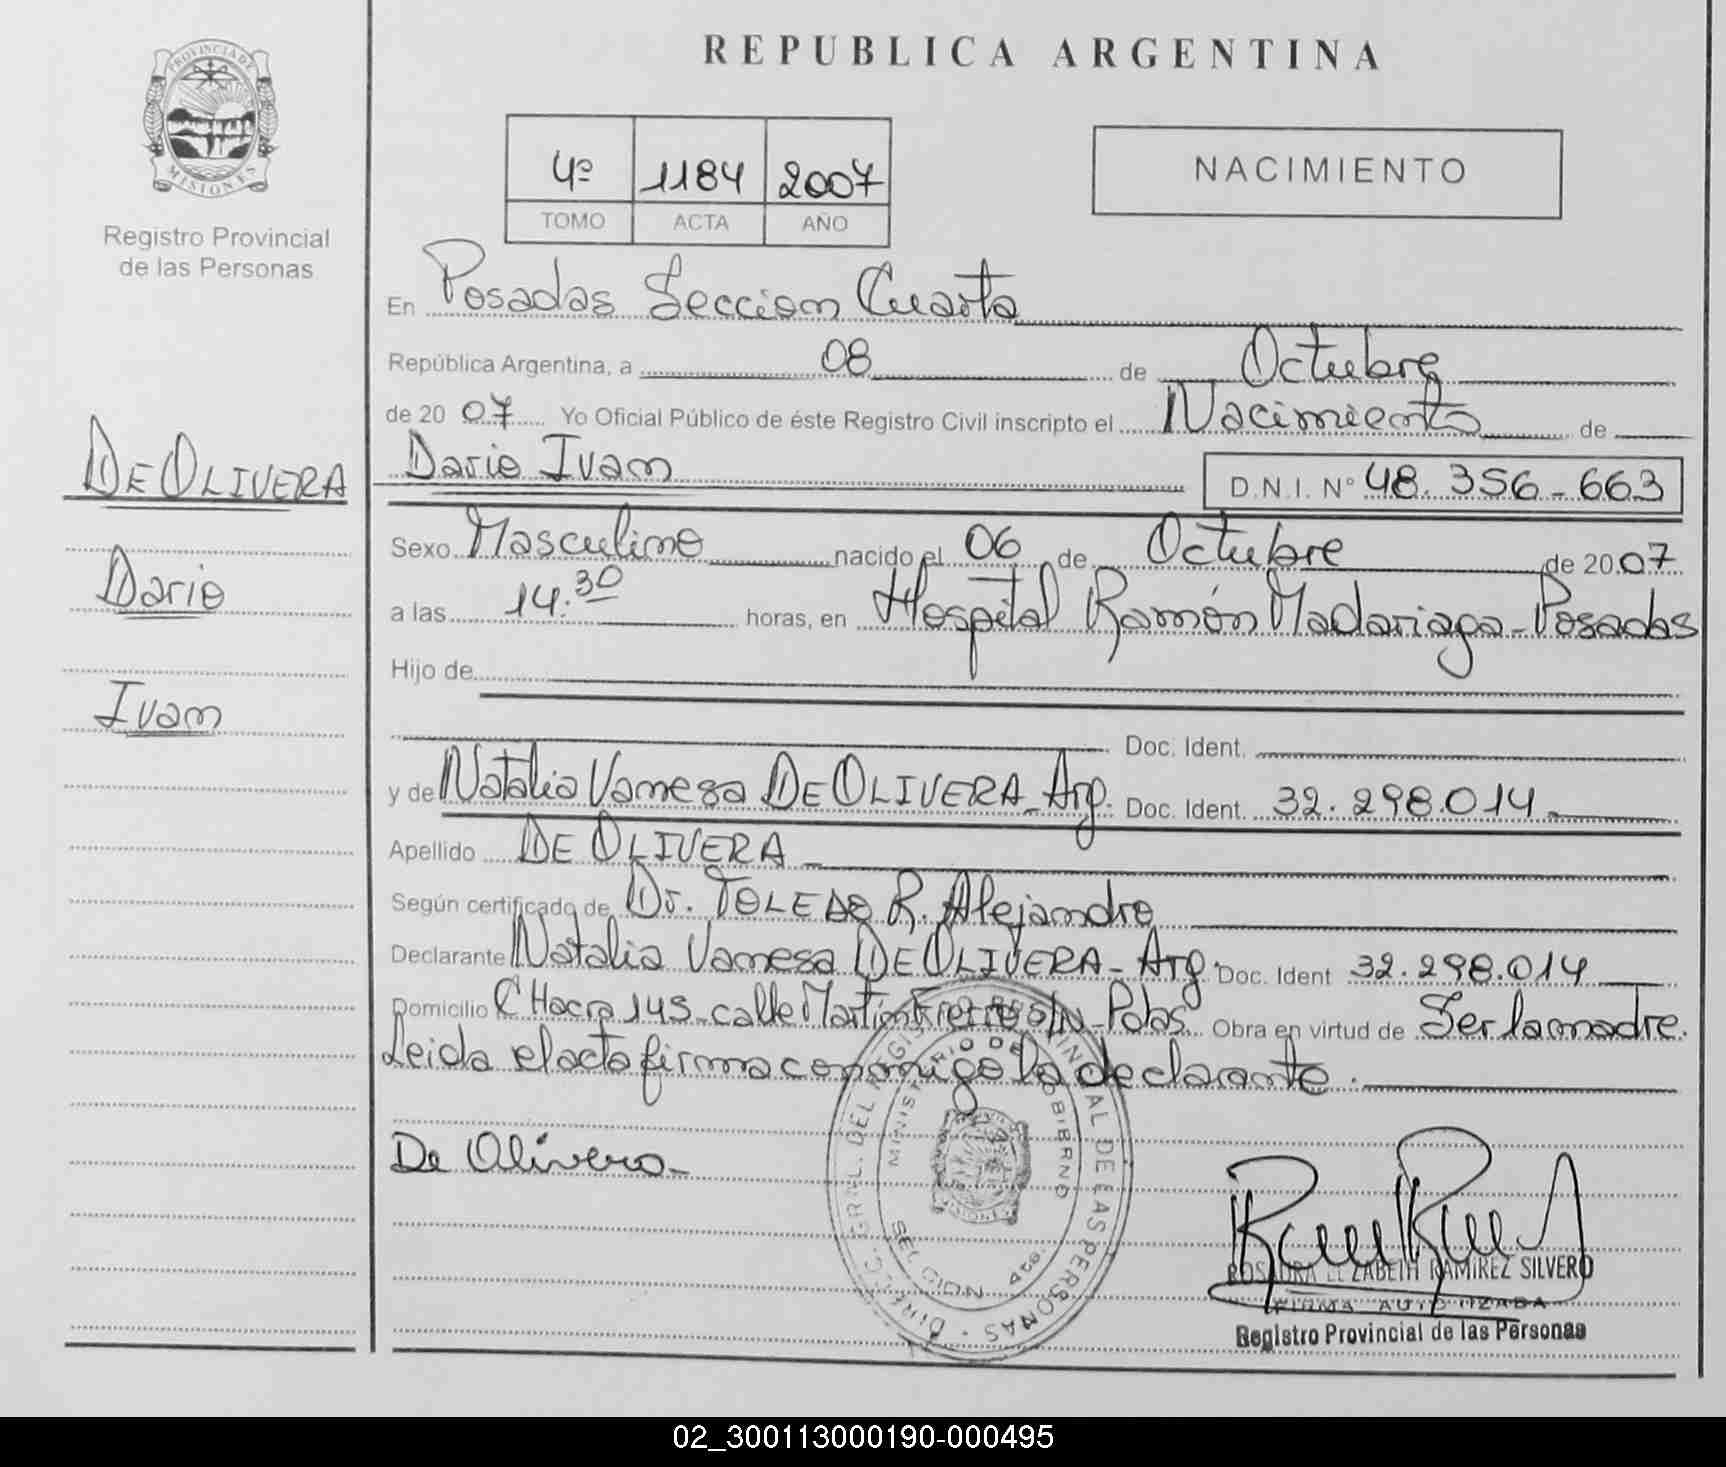 REPUBLICA ARGENTINA
PROVINCIA DE
MISIONES
Registro Provincial
de las Personas
4º 1184 2007
TOMO ACTA AÑO
NACIMIENTO
En Posadas Seccion Cuarta
República Argentina, a 08 de Octubre
de 20 07 Yo Oficial Público de éste Registro Civil inscripto el Nacimiento de
DE OLIVERA
Dario Ivan
D.N.I. Nº 48.356-663
Sexo Masculino nacido el 06 de Octubre de 20 07
Dario
a las 14.30 horas, en Hospital Ramón Madariaga-Posadas
Hijo de
Ivan
Doc. Ident.
y de Natalia Vanesa DE OLIVERA-Arg. Doc. Ident. 32.298.014
Apellido DE OLIVERA
Según certificado de Dr. TOLEDO R. Alejandro
Declarante Natalia Vanesa DE OLIVERA-Arg. Doc. Ident 32.298.014
Domicilio CHacra 145-calle Martín Fierro S/N-Pdas Obra en virtud de Ser la madre.
Leida el acta firma conmigo la declarante.
De Olivera
DIREC. GRAL. DEL REGIST PROVINCIAL DE LAS PERSONAS
MINISTERIO DE GOBIERNO
SECCION 4ta.
RAMIREZ SILVERO
FIRMA AUTORIZADA
Registro Provincial de las Personas
02_300113000190-000495